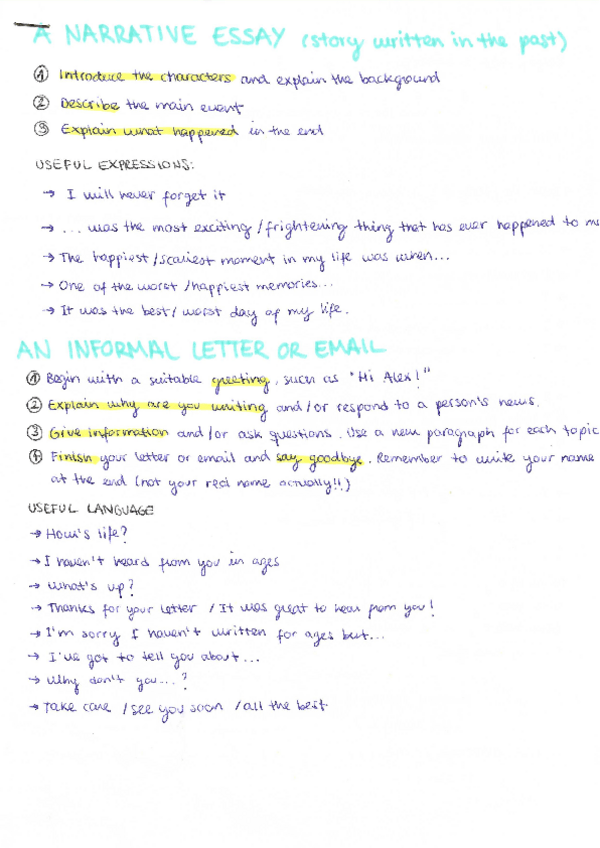 A NARRATIVE ESSAY (story written in the past)
① Introduce the characters and explain the background
② Describe the main event
③ Explain what happened in the end
USEFUL EXPRESSIONS:
→ I will never forget it
→ ... was the most exciting / frightening thing that has ever happened to me
→ The happiest / scariest moment in my life was when...
→ One of the worst / happiest memories...
→ It was the best / worst day of my life.
AN INFORMAL LETTER OR EMAIL
① Begin with a suitable greeting, such as "Hi Alex!"
② Explain why are you writing and/or respond to a person's news.
③ Give information and/or ask questions. Use a new paragraph for each topic
④ Finish your letter or email and say goodbye. Remember to write your name
at the end (not your real name actually!!)
USEFUL LANGUAGE
→ How's life?
→ I haven't heard from you in ages
→ What's up?
→ Thanks for your letter / It was great to hear from you!
→ I'm sorry I haven't written for ages but...
→ I've got to tell you about...
→ Why don't you...?
→ Take care / see you soon / all the best